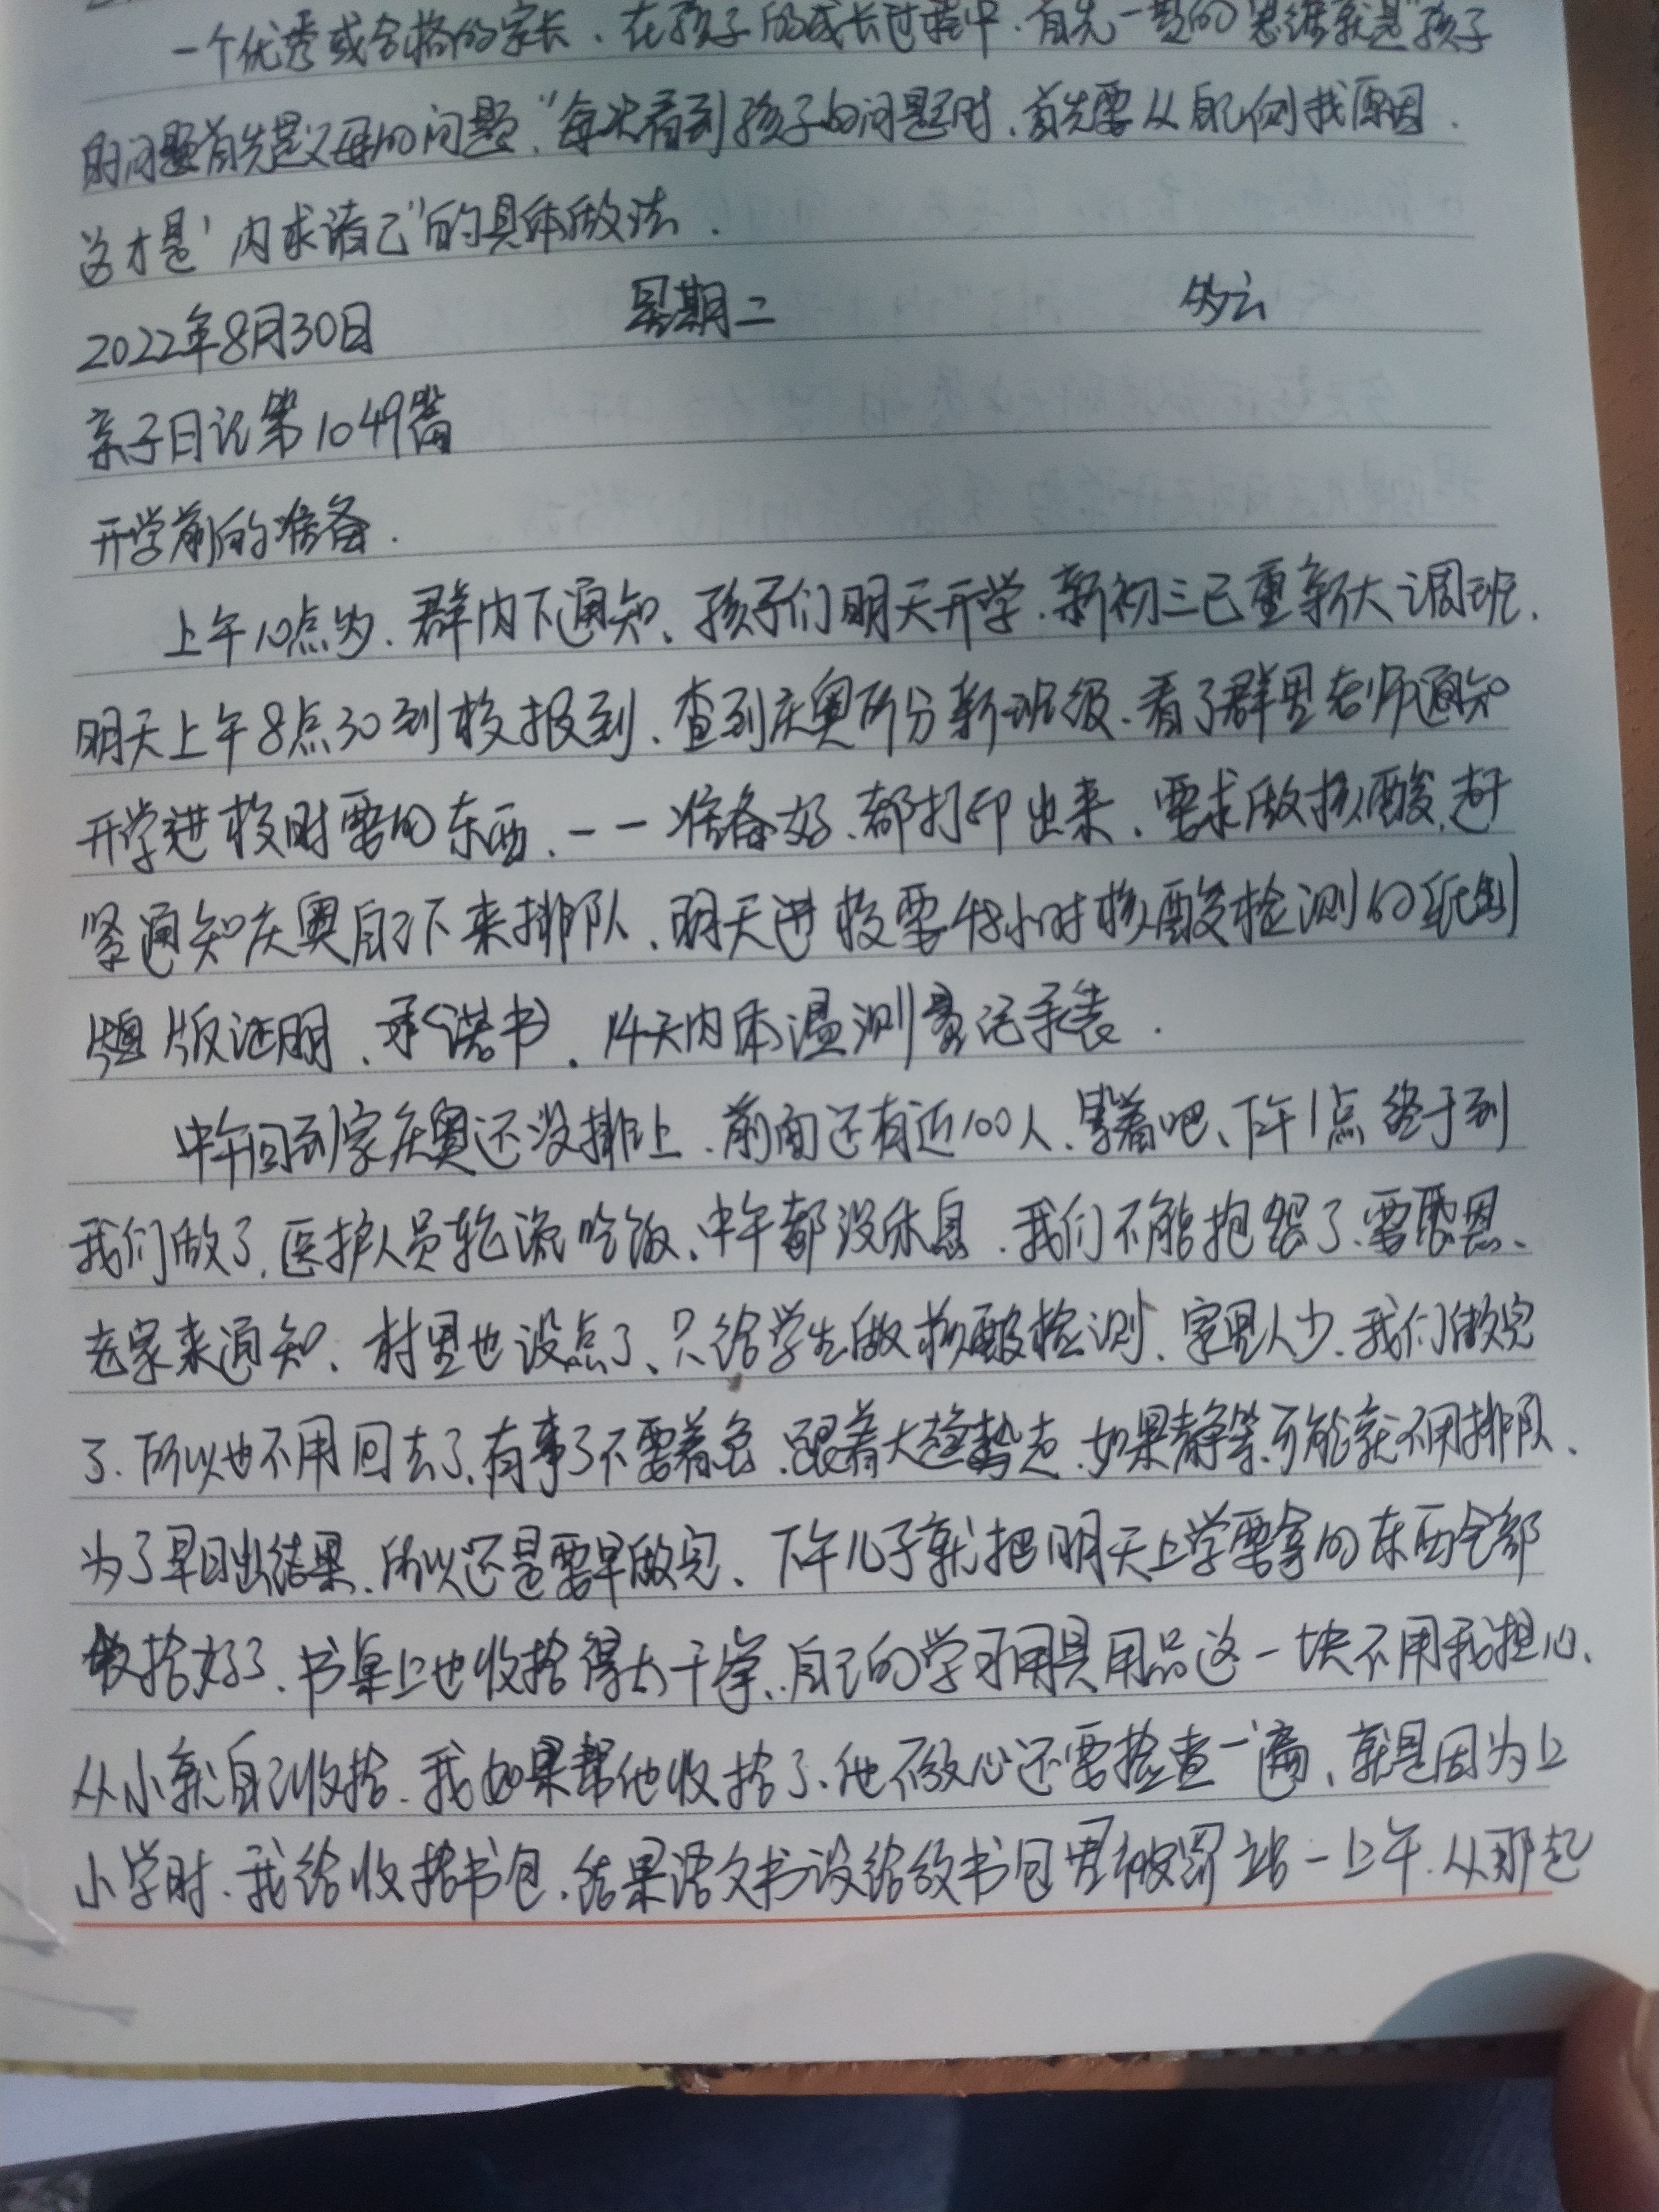 一个优秀或合格的家长、在孩子的成长过程中、首先一定的思维就是"孩子
的问题首先是父母的问题,"每次看到孩子的问题时、首先要从自己例找原因.
这才是"内求诸己"的具体做法.
2022年8月30日 星期二 多云
亲子日记第1049篇
开学前的准备.
上午10点多、群内下通知、孩子们明天开学、新初三已重新大调班、
明天上午8点30到校报到、查到庆奥所分新班级、看了群里老师通知
开学进校时要的东西、一一准备好、都打印出来、要求做核酸、赶
紧通知庆奥自己下来排队、明天进校要48小时核酸检测的纸制
版证明、承诺书、14天内体温测量记录表.
中午回到家庆奥还没排上、前面还有近100人、等着吧、下午1点终于到
我们做了、医护人员轮流吃饭、中午都没休息、我们不能抱怨了、要感恩、
老家来通知、村里也设点了、只给学生做核酸检测、家里人少、我们做完
了、所以也不用回去了、有事了不要着急、跟着大趋势走、如果静等、可能就不用排队、
为了早日出结果、所以还是要早做完、下午儿子就把明天上学要拿的东西全部
收拾好了、书桌上也收拾得太干净、自己的学习用具用品这一块不用我担心、
从小就自己收拾、我如果帮他收拾了、他不放心还要检查一遍、就是因为上
小学时、我给收拾书包、结果语文书没给放书包里被罚站一上午、从那起